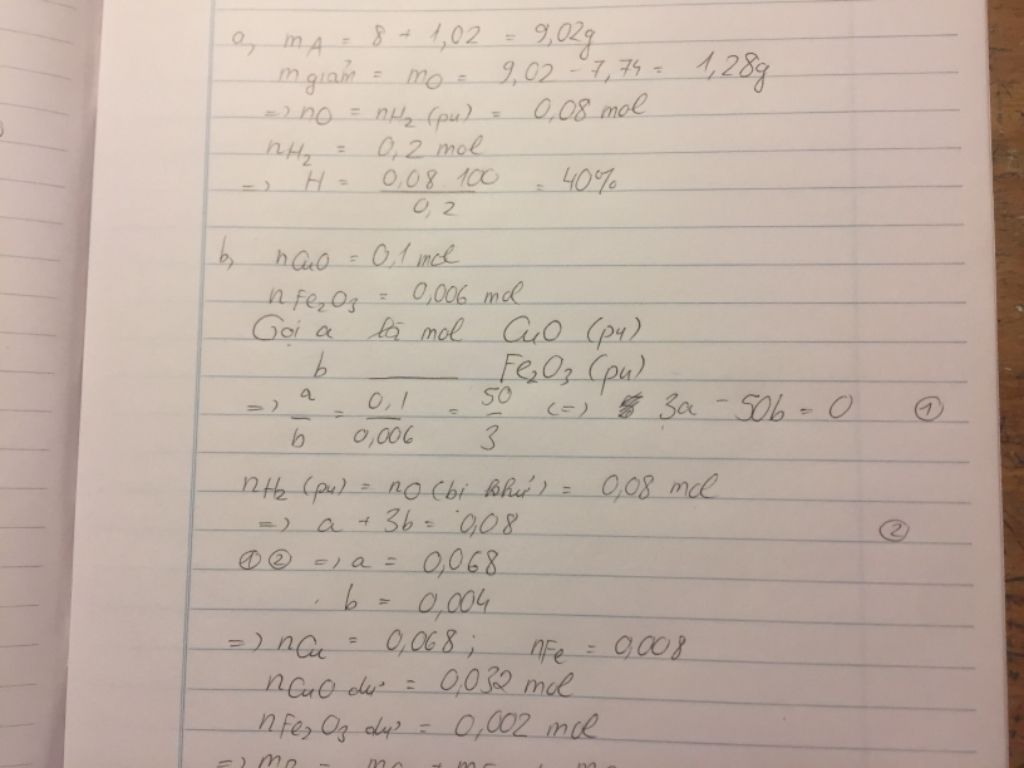 a, mA = 8 + 1,02 = 9,02g
m giảm = mO = 9,02 - 7,74 = 1,28g
=> nO = nH2 (pư) = 0,08 mol
nH2 = 0,2 mol
=> H = 0,08 100 / 0,2 = 40%
b, nCuO = 0,1 mol
nFe2O3 = 0,006 mol
Gọi a là mol CuO (pư)
b ——— Fe2O3 (pư)
=> a/b = 0,1/0,006 = 50/3 (=) 3a - 50b = 0 ①
nH2 (pư) = nO (bị khử) = 0,08 mol
=> a + 3b = 0,08 ②
① ② => a = 0,068
b = 0,004
=> nCu = 0,068; nFe = 0,008
nCuO dư = 0,032 mol
nFe2O3 dư = 0,002 mol